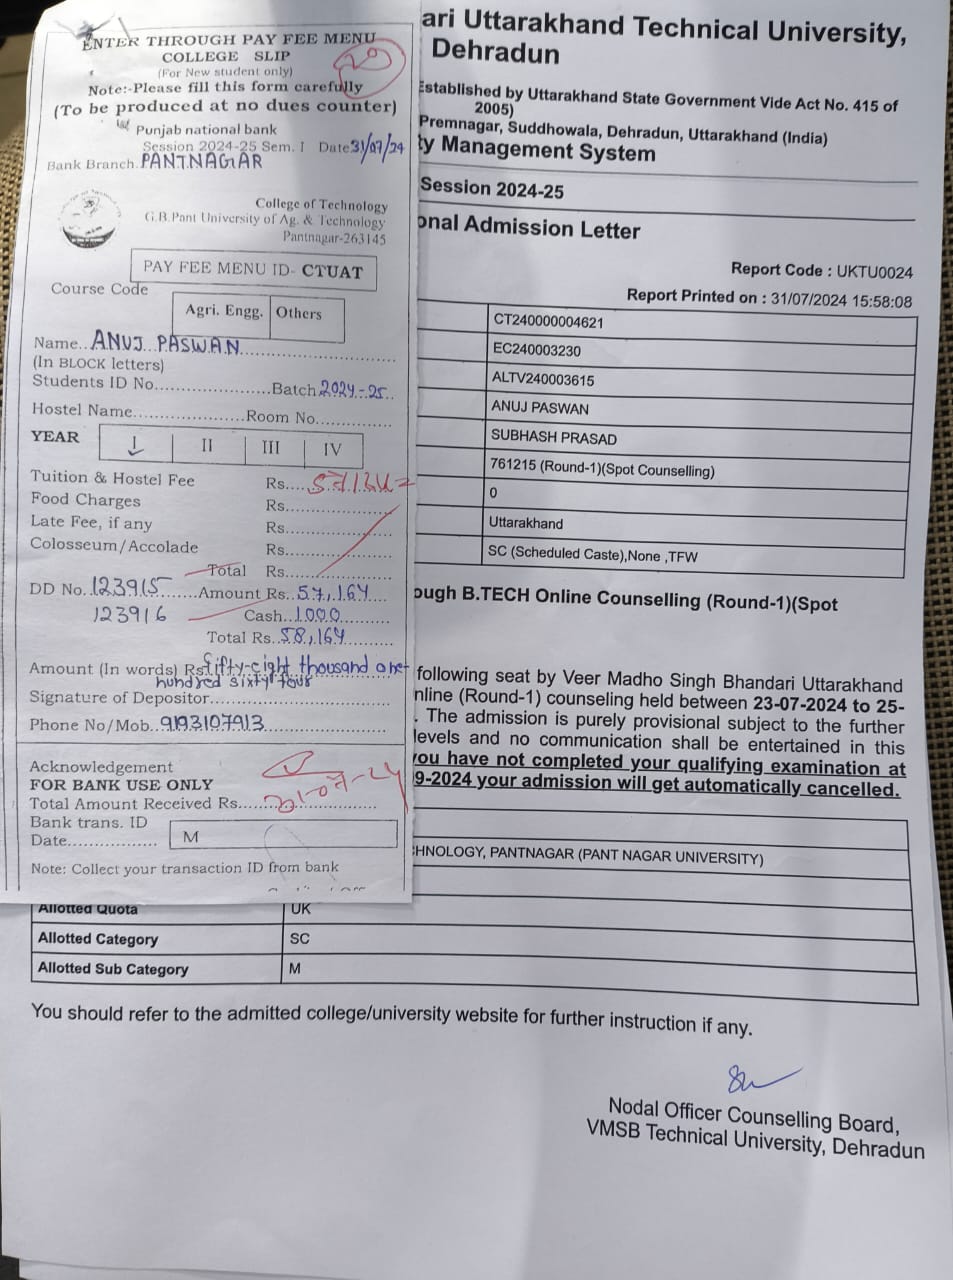 ENTER THROUGH PAY FEE MENU
COLLEGE SLIP
(For New student only)
Note:-Please fill this form carefully
(To be produced at no dues counter)
Punjab national bank
Session 2024-25 Sem. I Date 31/07/24
Bank Branch. PANTNAGAR
College of Technology
G.B.Pant University of Ag. & Technology
Pantnagar-263145
PAY FEE MENU ID- CTUAT
Course Code
Agri. Engg. Others
Name.. ANUJ PASWAN
(In BLOCK letters)
Students ID No.......................Batch 2024-25..
Hostel Name....................Room No..............
YEAR I II III IV
Tuition & Hostel Fee Rs....
Food Charges Rs....
Late Fee, if any Rs....
Colosseum/Accolade Rs....
Total Rs....
DD No. 123915.......Amount Rs. 57,164
123916 Cash..1000
Total Rs..58,164
Amount (In words) Rs fifty-eight thousand one
hundred sixty four
Signature of Depositor....................
Phone No/Mob..9193107913
Acknowledgement
FOR BANK USE ONLY
Total Amount Received Rs....
31-07-24
Bank trans. ID
Date.................
M
Note: Collect your transaction ID from bank
ari Uttarakhand Technical University,
Dehradun
Established by Uttarakhand State Government Vide Act No. 415 of
2005)
Premnagar, Suddhowala, Dehradun, Uttarakhand (India)
ty Management System
Session 2024-25
onal Admission Letter
Report Code : UKTU0024
Report Printed on : 31/07/2024 15:58:08
CT240000004621
EC240003230
ALTV240003615
ANUJ PASWAN
SUBHASH PRASAD
761215 (Round-1)(Spot Counselling)
0
Uttarakhand
SC (Scheduled Caste),None ,TFW
ough B.TECH Online Counselling (Round-1)(Spot
following seat by Veer Madho Singh Bhandari Uttarakhand
nline (Round-1) counseling held between 23-07-2024 to 25-
. The admission is purely provisional subject to the further
levels and no communication shall be entertained in this
you have not completed your qualifying examination at
9-2024 your admission will get automatically cancelled.
CHNOLOGY, PANTNAGAR (PANT NAGAR UNIVERSITY)
Allotted Quota UK
Allotted Category SC
Allotted Sub Category M
You should refer to the admitted college/university website for further instruction if any.
Nodal Officer Counselling Board,
VMSB Technical University, Dehradun